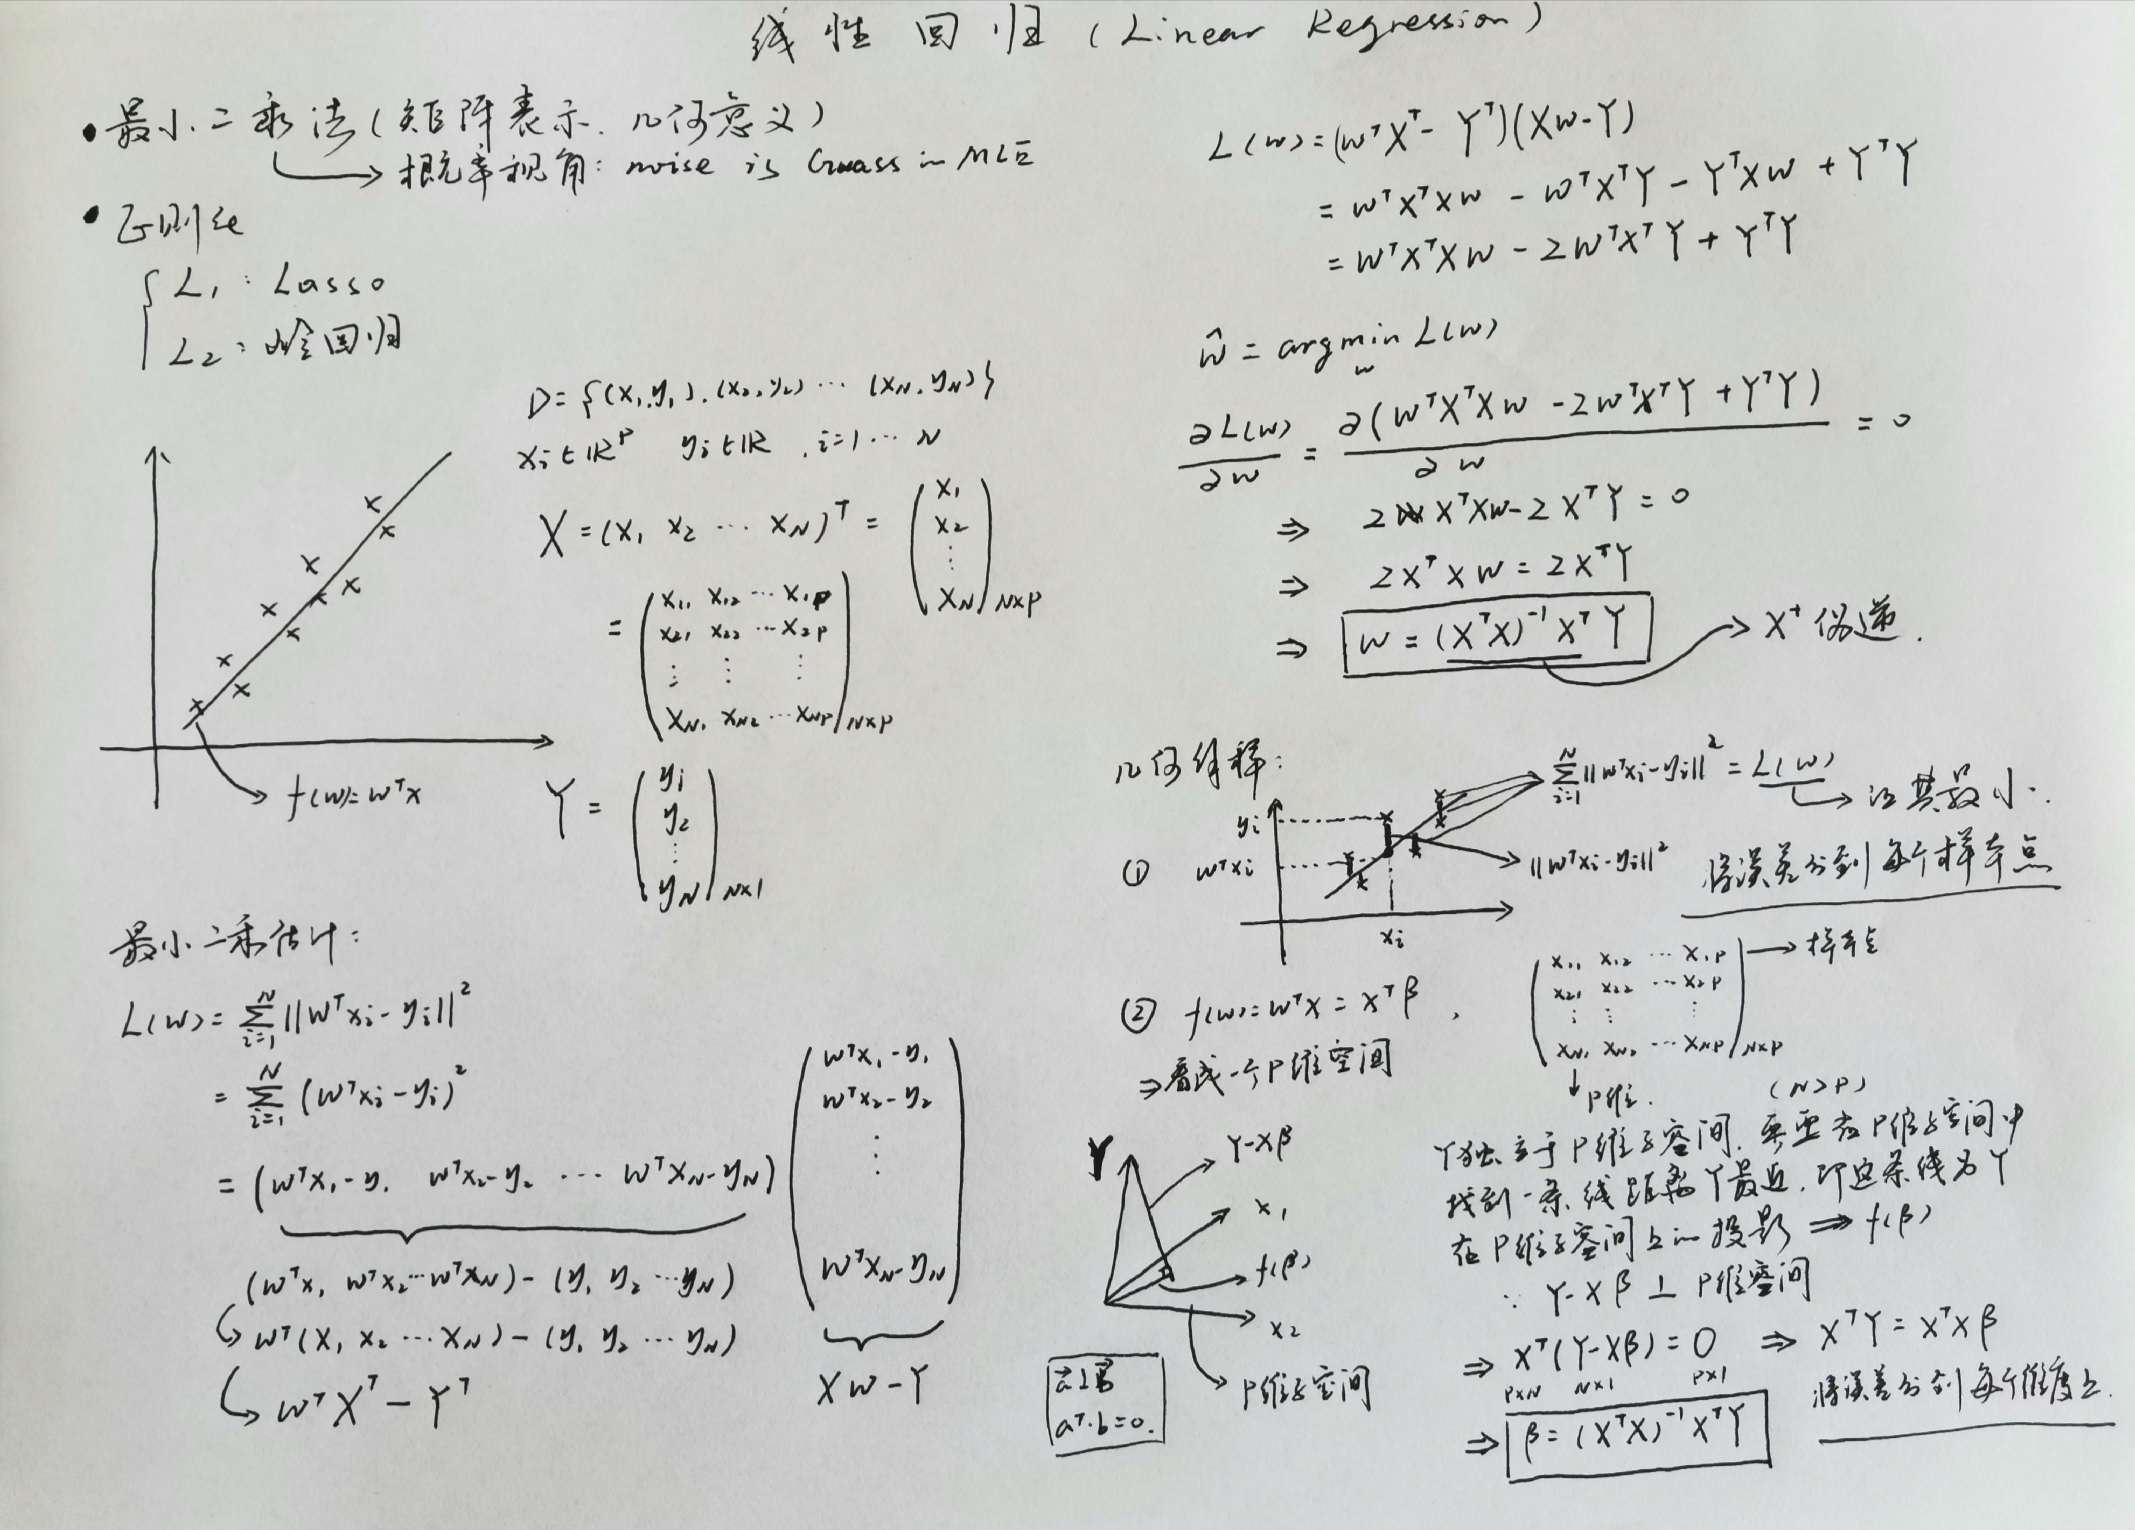 线性回归(Linear Regression)
• 最小二乘法(矩阵表示、几何意义)
→ 概率视角: noise is Gauss in MLE
• 正则化
{ L₁: Lasso
L₂: 岭回归
D={(x₁,y₁),(x₂,y₂)⋯(x_N,y_N)}
x_i∈ℝᴾ y_i∈ℝ, i=1⋯N
X=(x₁ x₂ ⋯ x_N)ᵀ = (x₁ x₂ ⋮ x_N)_{N×P}
= (x₁₁ x₁₂ ⋯ x₁ₚ
x₂₁ x₂₂ ⋯ x₂ₚ
⋮ ⋮ ⋮
x_N₁ x_N₂ ⋯ x_NP)_{N×P}
→ f(w)=wᵀx
Y = (y₁ y₂ ⋮ y_N)_{N×1}
最小二乘估计:
L(w)= Σ_{i=1}^N ||wᵀx_i-y_i||²
= Σ_{i=1}^N (wᵀx_i-y_i)²
= (wᵀx₁-y₁ wᵀx₂-y₂ ⋯ wᵀx_N-y_N) (wᵀx₁-y₁ wᵀx₂-y₂ ⋮ wᵀx_N-y_N)
(wᵀx₁ wᵀx₂⋯wᵀx_N)-(y₁ y₂⋯y_N)
↪ wᵀ(x₁ x₂⋯x_N)-(y₁ y₂⋯y_N)
↪ wᵀXᵀ-Yᵀ
Xw-Y
L(w)=(wᵀXᵀ-Yᵀ)(Xw-Y)
= wᵀXᵀXw - wᵀXᵀY - YᵀXw + YᵀY
= wᵀXᵀXw - 2wᵀXᵀY + YᵀY
ŵ = argmin_w L(w)
∂L(w)/∂w = ∂(wᵀXᵀXw-2wᵀXᵀY+YᵀY)/∂w = 0
⇒ 2XᵀXw-2XᵀY=0
⇒ 2XᵀXw=2XᵀY
⇒ w=(XᵀX)⁻¹XᵀY → X⁺ 伪逆.
几何解释:
Σ_{i=1}^N ||wᵀx_i-y_i||² = L(w) → 让其最小.
①
y_i
wᵀx_i
x_i
||wᵀx_i-y_i||²
将误差分到每个样本点
② f(w)=wᵀx=xᵀβ,
⇒看成一个P维空间
(x₁₁ x₁₂ ⋯ x₁ₚ → 样本点
x₂₁ x₂₂ ⋯ x₂ₚ
⋮ ⋮ ⋮
x_N₁ x_N₂ ⋯ x_NP)_{N×P}
↓ P维.
(N>P)
Y
Y-Xβ
x₁
f(β)
x₂
P维子空间
a⃗⊥b⃗
aᵀ·b=0.
Y独立于P维子空间, 要在P维子空间中
找到一条线距离Y最近, 即这条线为Y
在P维子空间上的投影 ⇒ f(β)
∵ Y-Xβ ⊥ P维空间
⇒ Xᵀ(Y-Xβ)=0 ⇒ XᵀY=XᵀXβ
P×N N×1 P×1
将误差分到每个维度上.
⇒ β=(XᵀX)⁻¹XᵀY